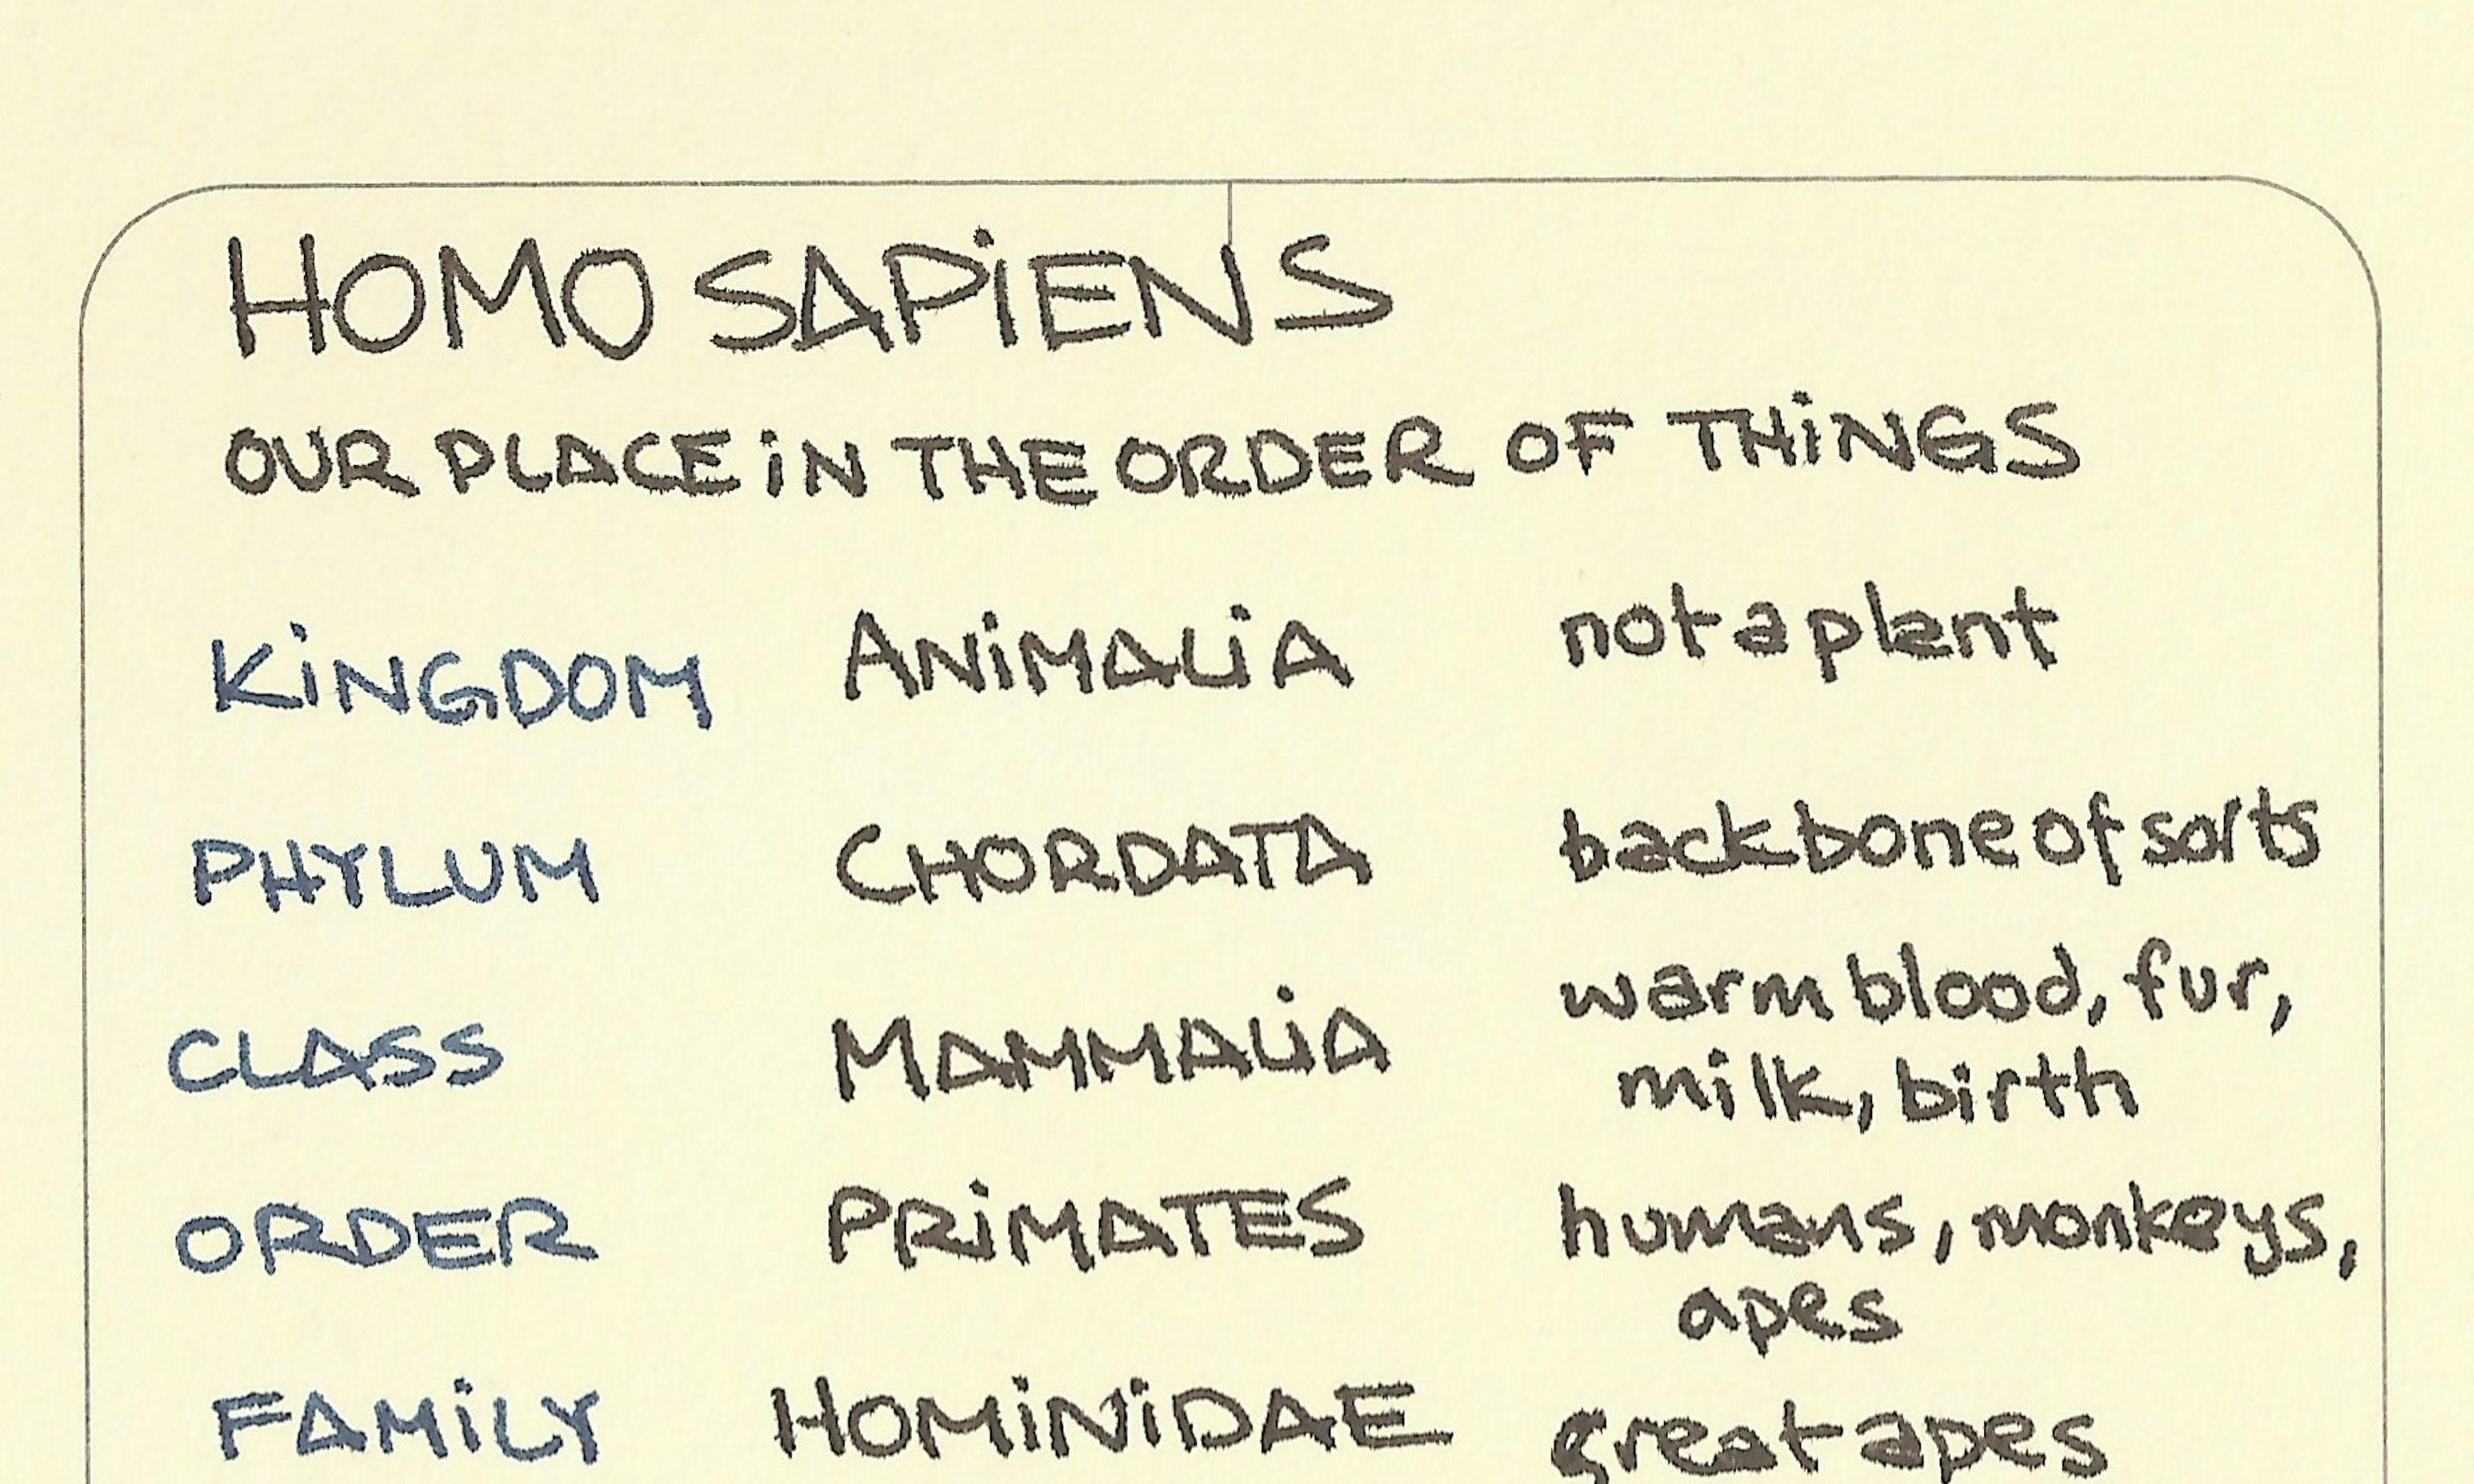 HOMO SAPiENS
OUR PLACE iN THE ORDER OF THiNGS
KiNGDOM ANiMALiA not a plant
PHYLUM CHORDATA backbone of sorts
CLASS MAMMALiA warm blood, fur,
milk, birth
ORDER PRiMATES humans, monkeys,
apes
FAMiLY HOMiNiDAE great apes